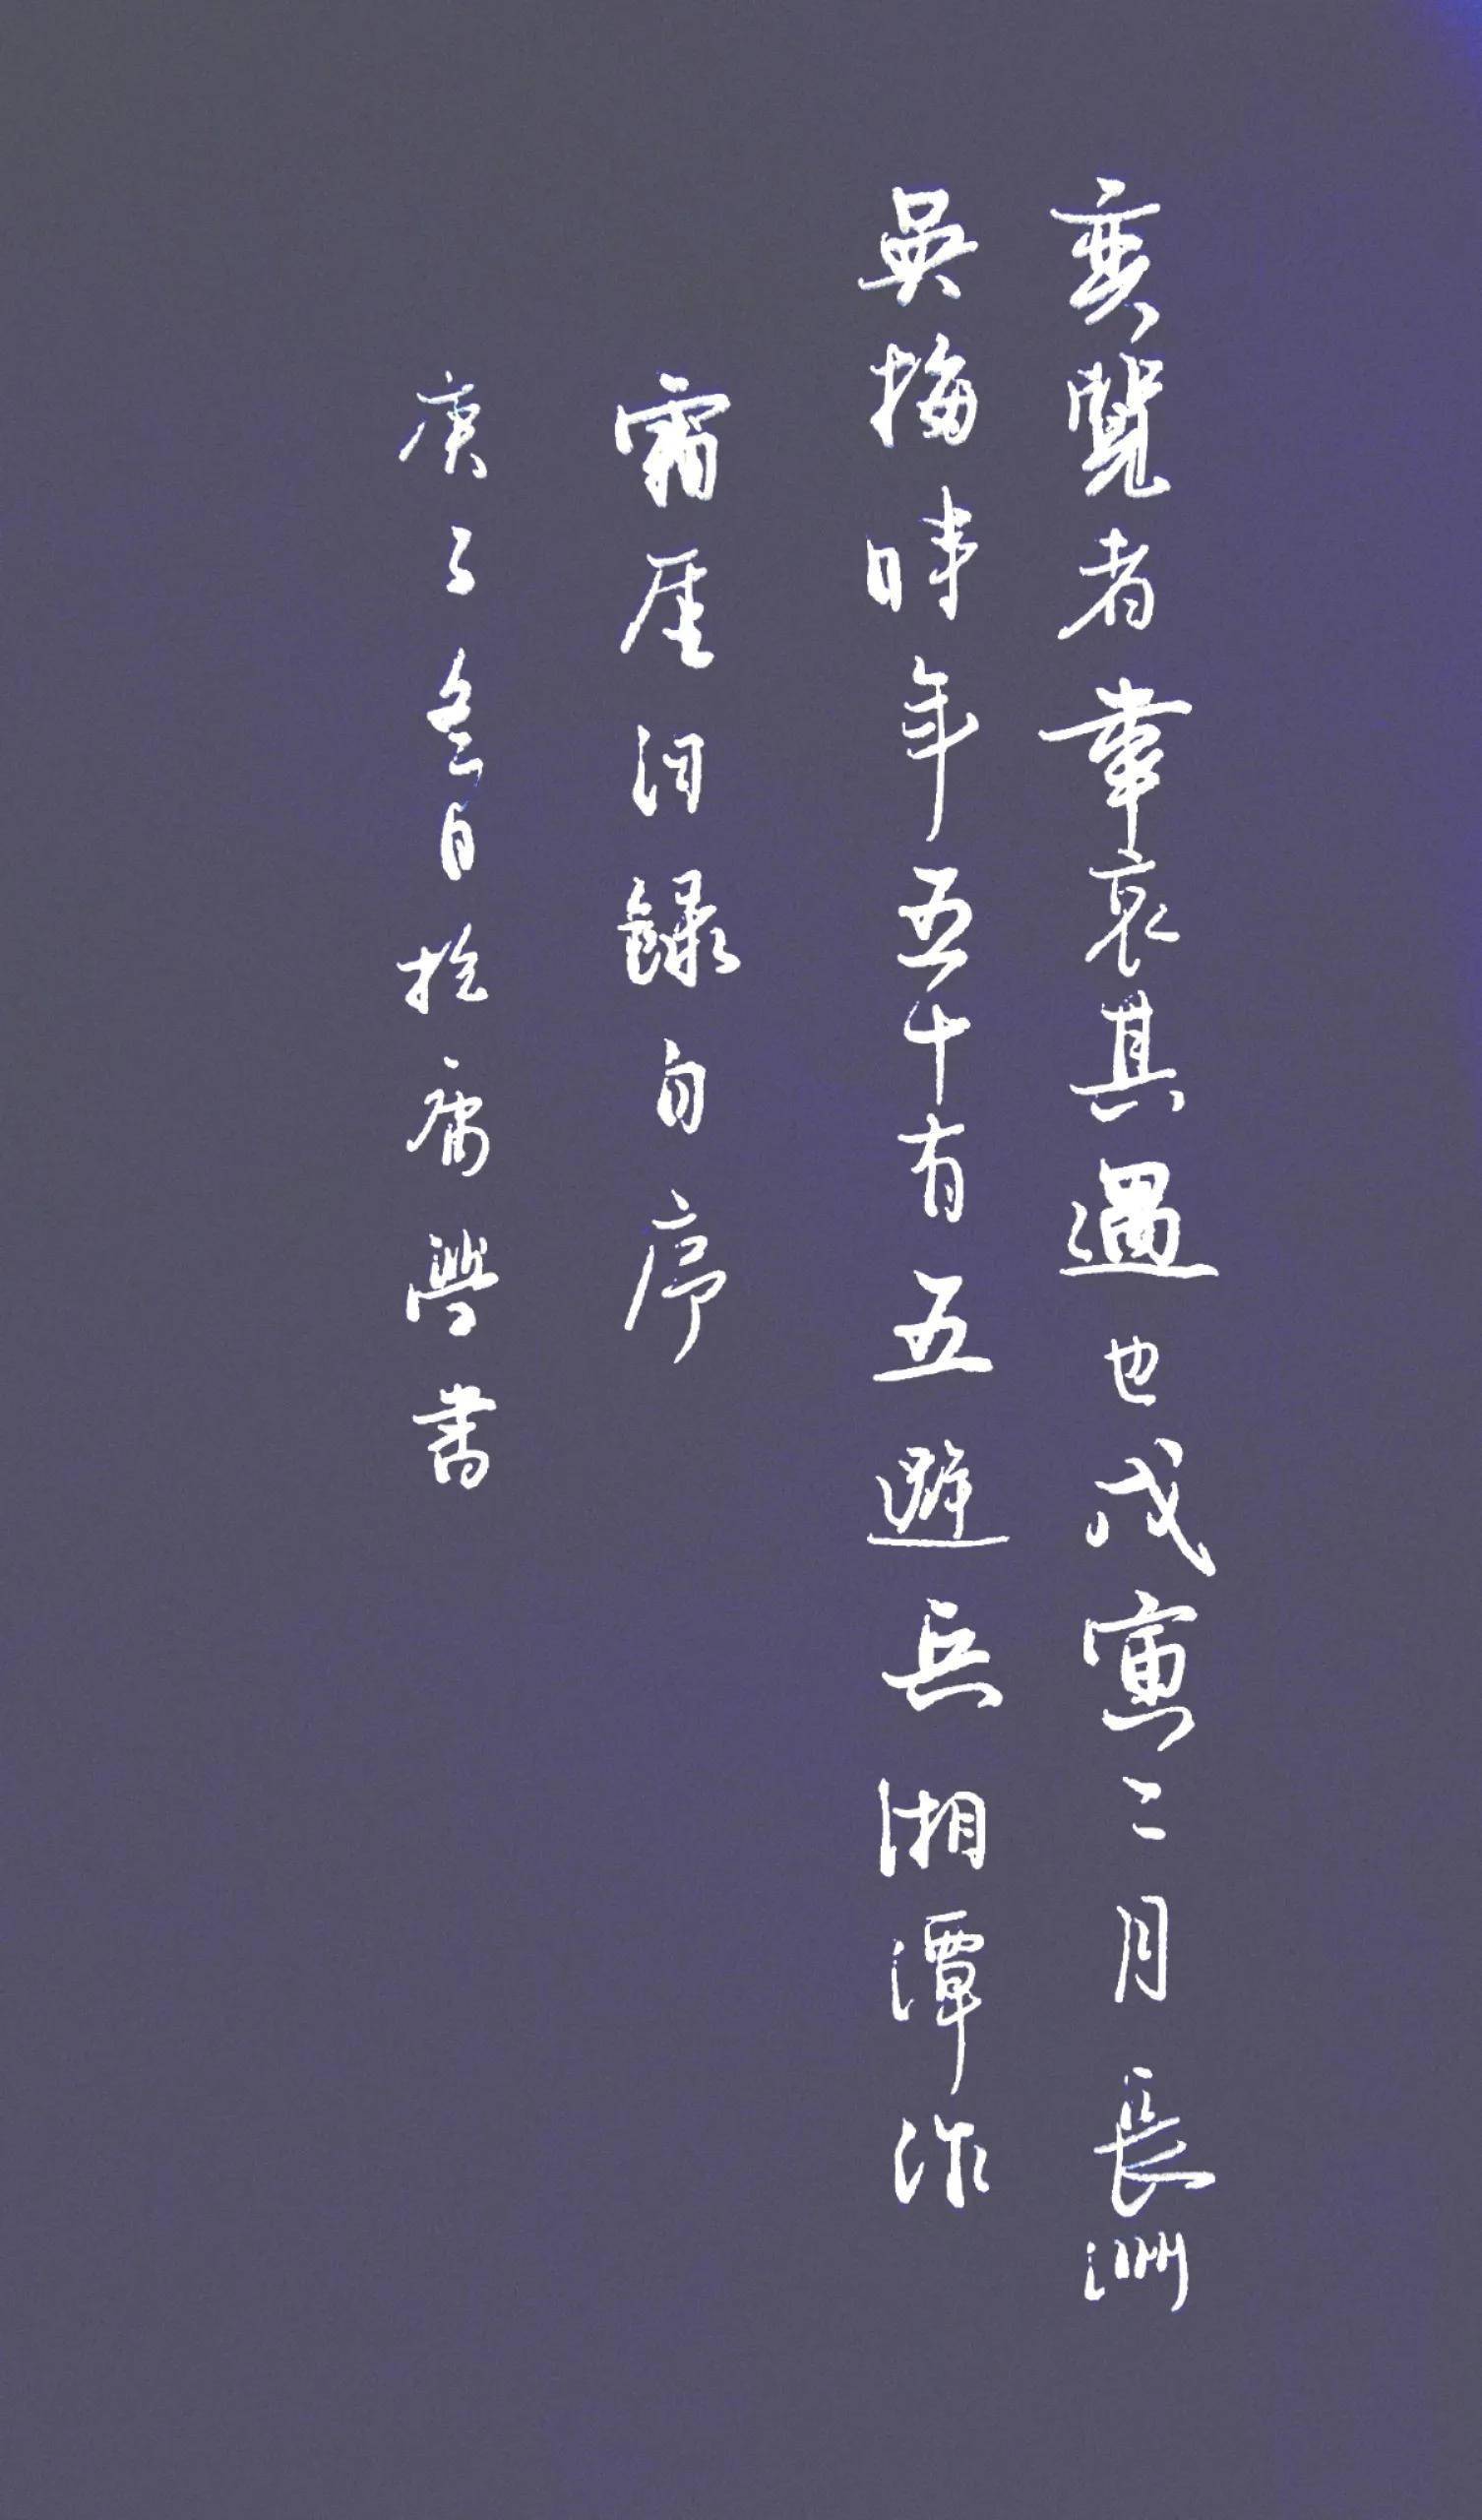 變覽者幸哀其遇也戊寅二月長洲
吳梅時年五十有五避兵湘潭作
霜厓詞錄自序
庚子冬日於學書